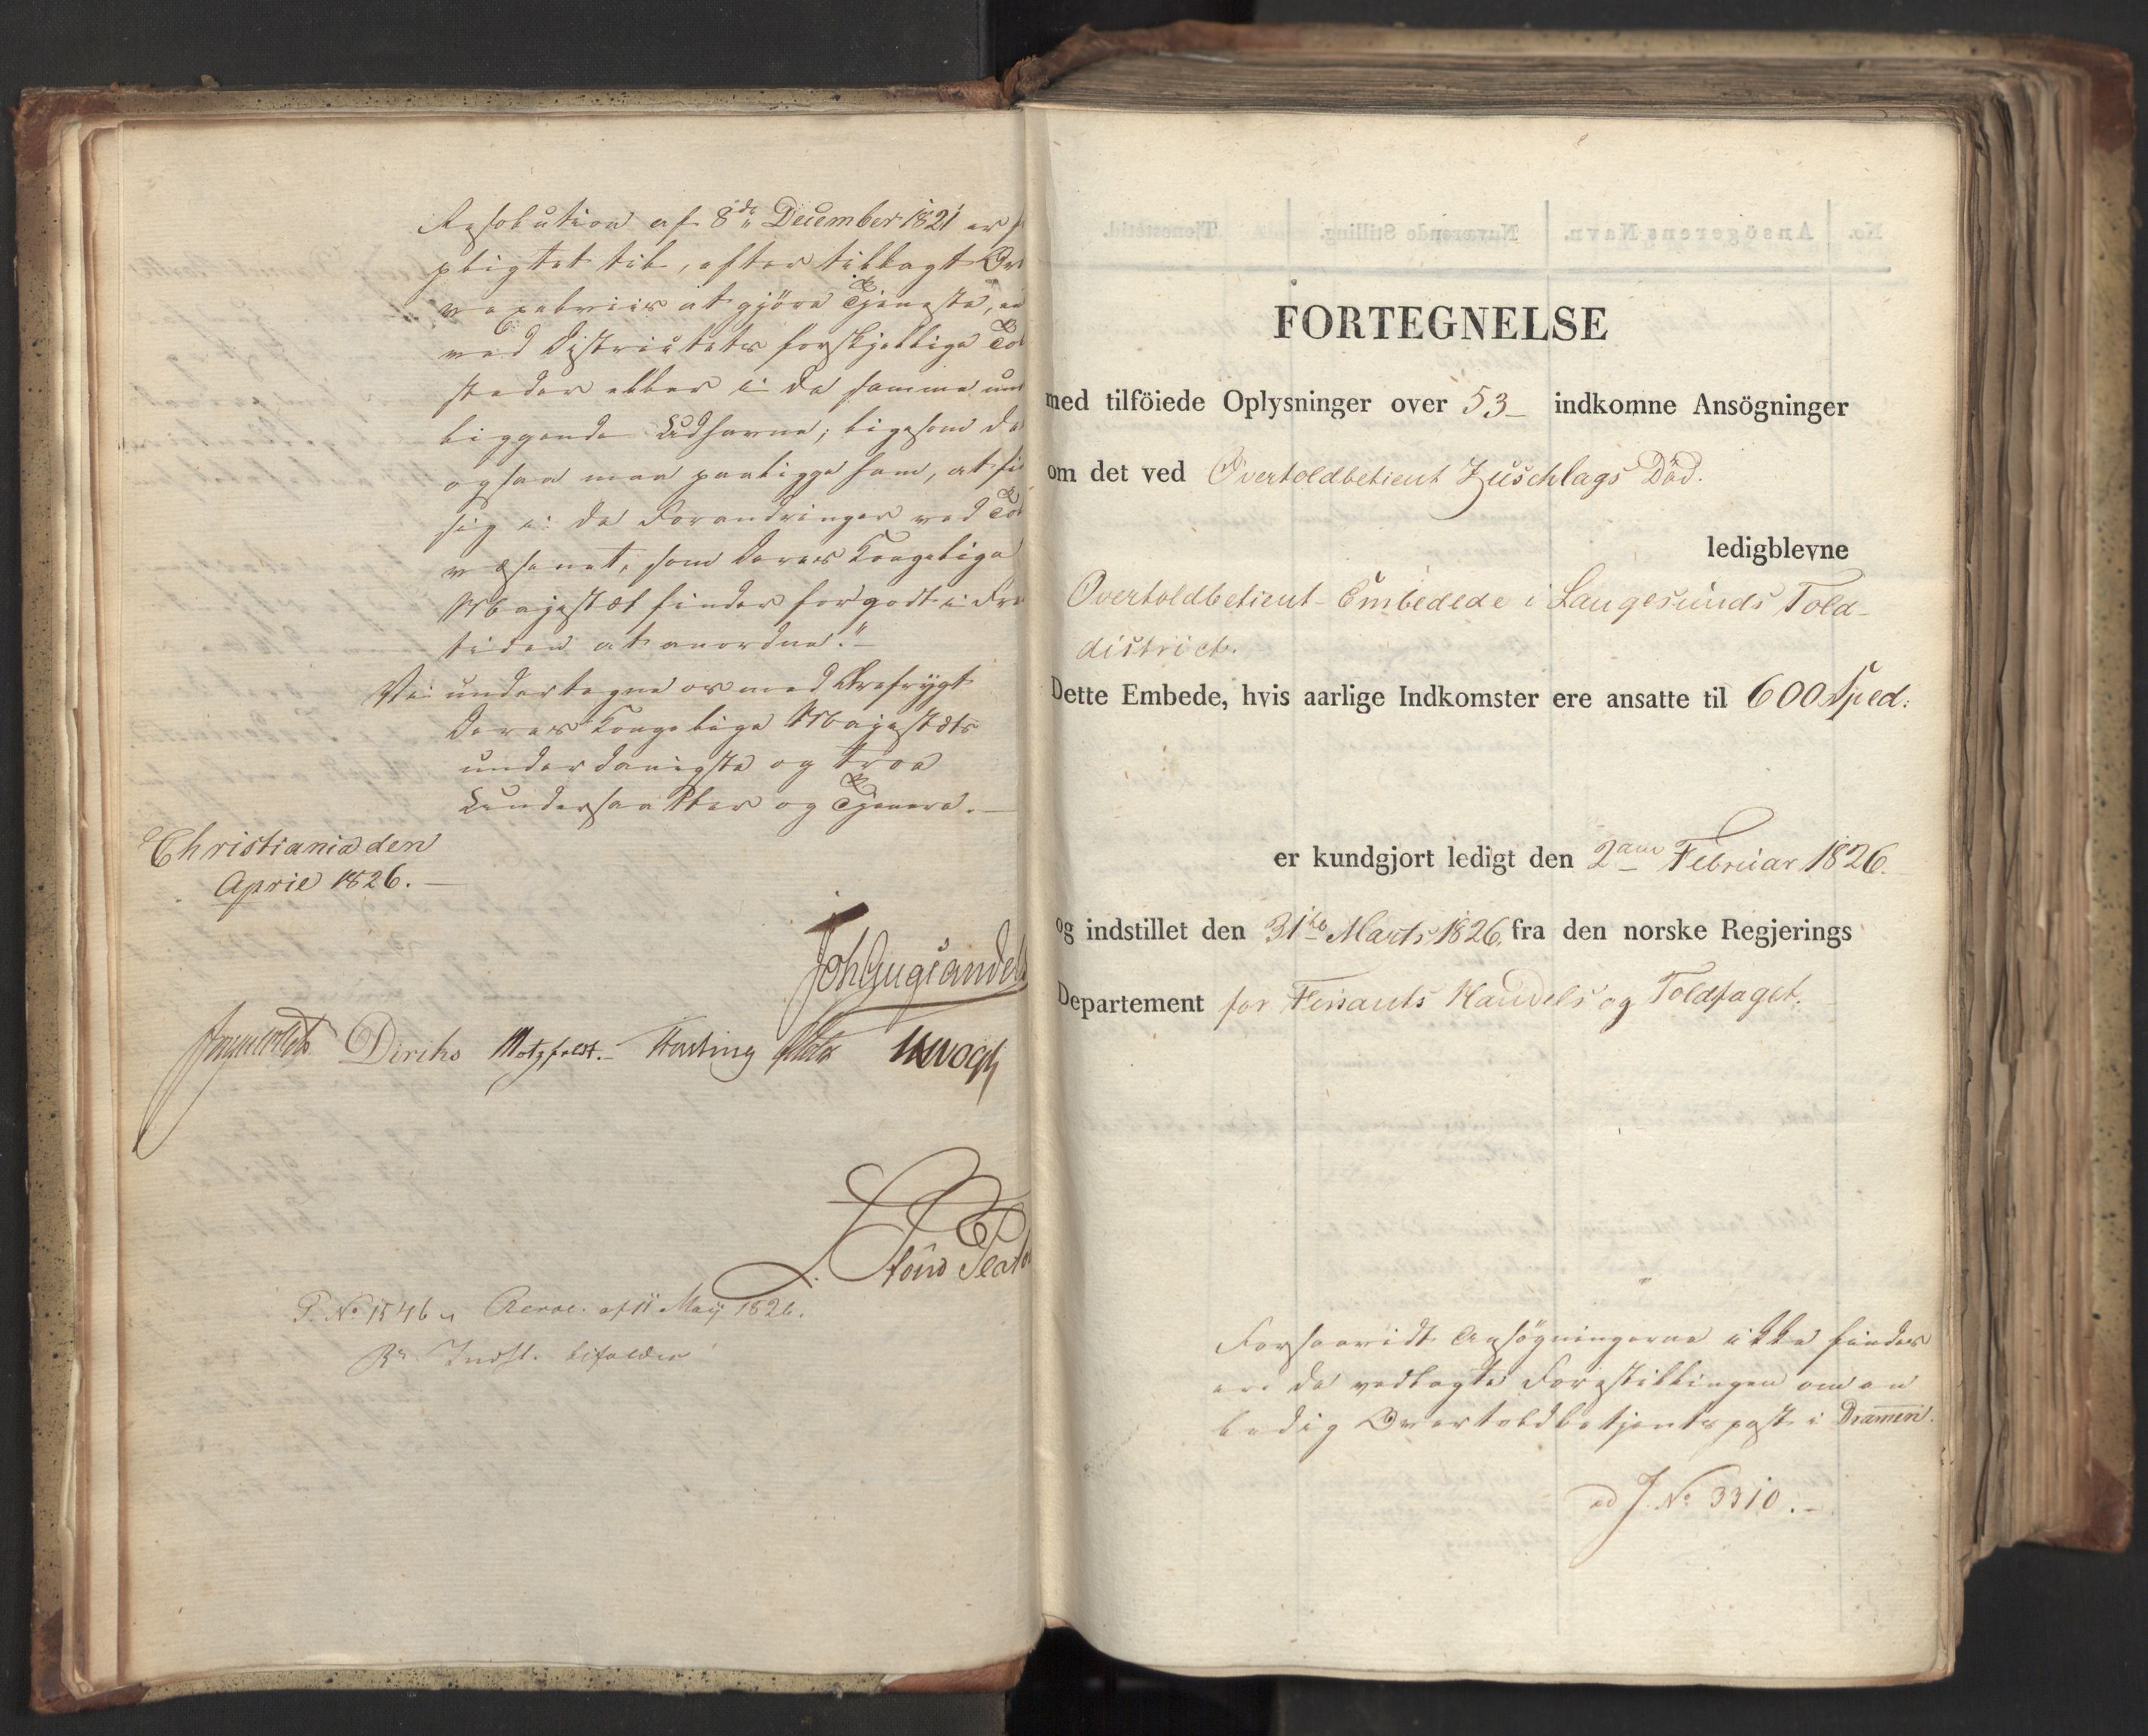 Resolution af 8de December 1821 er
pligtet til, efter tillagt
at gjöre Tjeneste,
ved Districtets forskjellige
steder eller i de samme
liggende Udhavne; ligesom de
ogsaa maa paaligge ham, at
sig i de Forandringer ved
væsenet, som Deres Kongelige
Majestæt finder for godt i
tiden at anordne."
Vi undertegne os med Ærefrygt
Deres Kongelige Majestæts
underdanigste og troe
Undersaatter og Tjenere.
Christiania den
April 1826.
Joh Aug Sandels
Diriks Motzfeldt. Vogt
P. No 1546 af 11 Maij 1826.
Indst. bifaldes
FORTEGNELSE
med tilföiede Oplysninger over 53 indkomne Ansögninger
om det ved Overtoldbetient Zuschlags Död.
ledigblevne
Overtoldbetient-Embedede i Langesunds Told-
district.
Dette Embede, hvis aarlige Indkomster ere ansatte til 600 Spd:
er kundgjort ledigt den 2den Februar 1826.
og indstillet den 31te Marts 1826, fra den norske Regjerings
Departement for Finants Handels og Toldfaget.
Forsaavidt Ansögningerne ikke findes
ere de vedlagte Forestillingen om en
ledig Overtoldbetjentspost i Drammen.
ad J. No 3310.